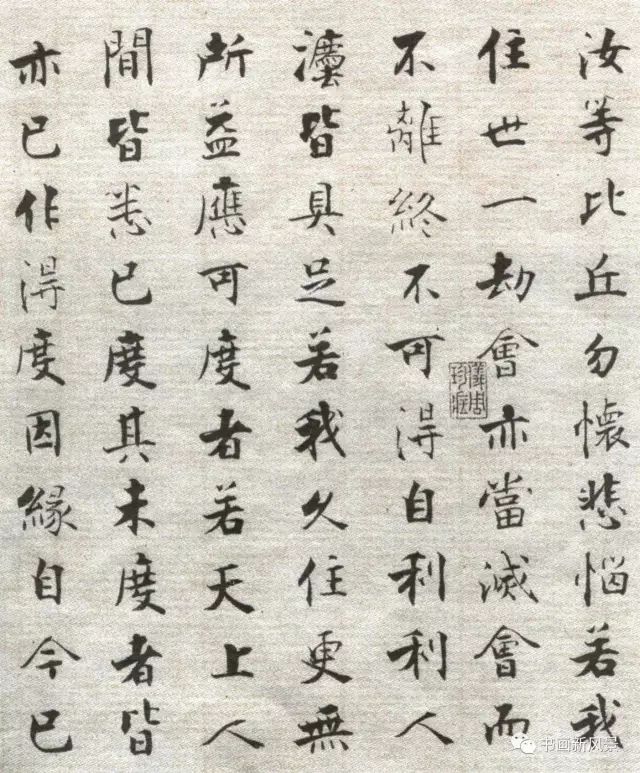 汝等比丘勿懷悲惱若我
住世一劫會亦當滅會而
不離終不可得自利利人
灋皆具足若我久住更無
所益應可度者若天上人
間皆悉已度其未度者皆
亦已作得度因緣自今已
书画新风景